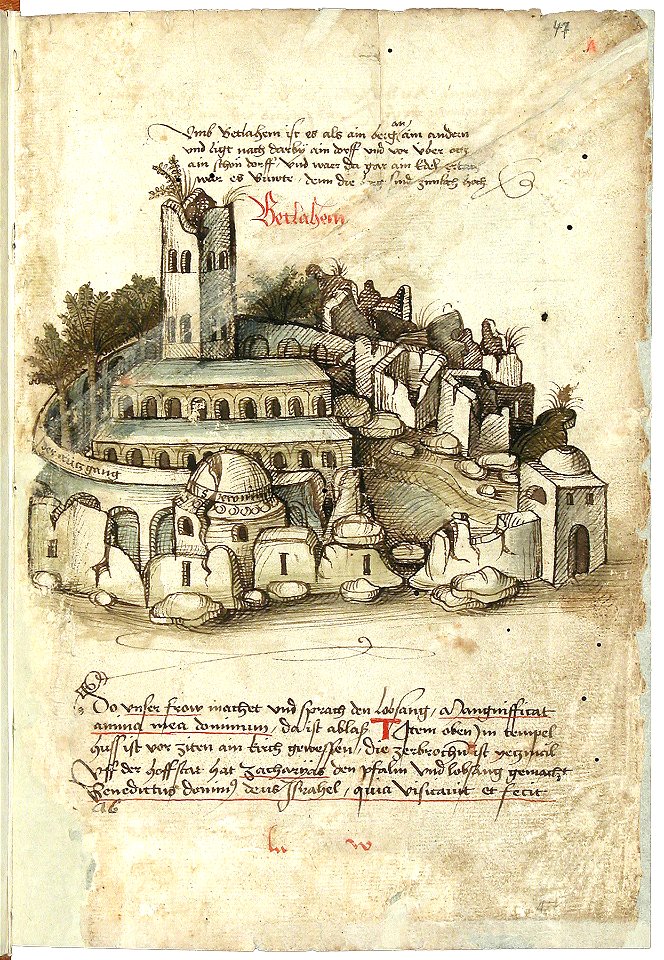 47
A
Umb Betlahem ist es als ain berg an ain andern
und ligt nach darby ain dorff und vor uber och
ain schön dorff und waer da gar ain Edel
wär es buwte denn die berg sind zimlich hoch
Betlahem
der crütz gang
S Jeronimus
Do unser frow machet und sprach den lobsang, Mangnifficat
anima mea dominum, da ist ablas Item oben in tempel
huss ist vor ziten ain kirch gewessen, die zerbrochn ist yetz
Uff der hoffstat hat Zacharyas den psalm und lobsang gemacht
Benedictus domin9 deus Israhel, quia visitavit et fecit